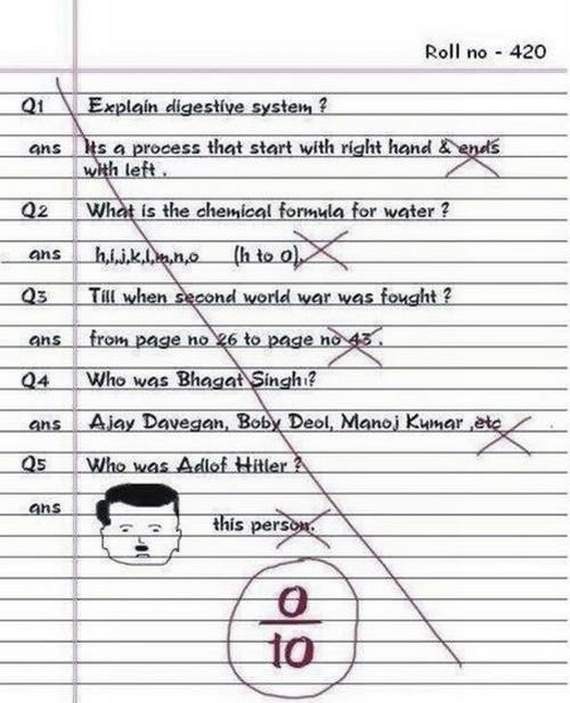 Roll no - 420
Q1 Explain digestive system ?
ans Its a process that start with right hand & ends
with left .
Q2 What is the chemical formula for water ?
ans h,i,j,k,l,m,n,o (h to o).
Q3 Till when second world war was fought ?
ans from page no 26 to page no 43 .
Q4 Who was Bhagat Singh ?
ans Ajay Davegan, Boby Deol, Manoj Kumar ,etc .
Q5 Who was Adlof Hitler ?
ans this person.
0
10